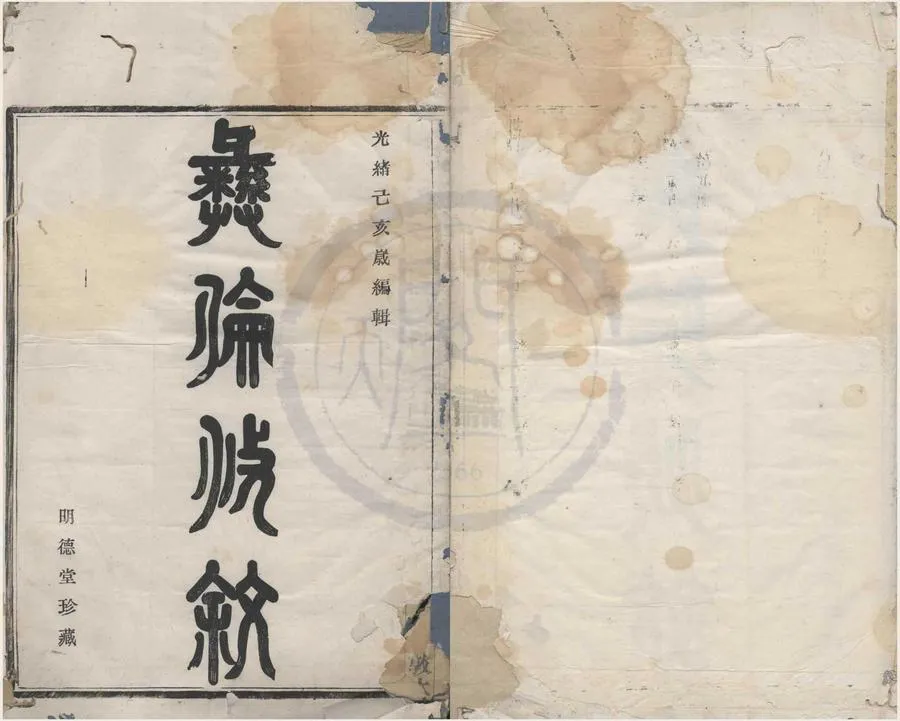 光緒己亥歲編輯
彝倫攸敘
明德堂珍藏